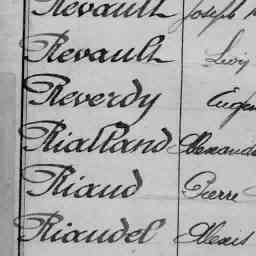 Revault Joseph
Revault Louis
Reverdy
Rialland
Riaud Pierre
Riaudel Alexis